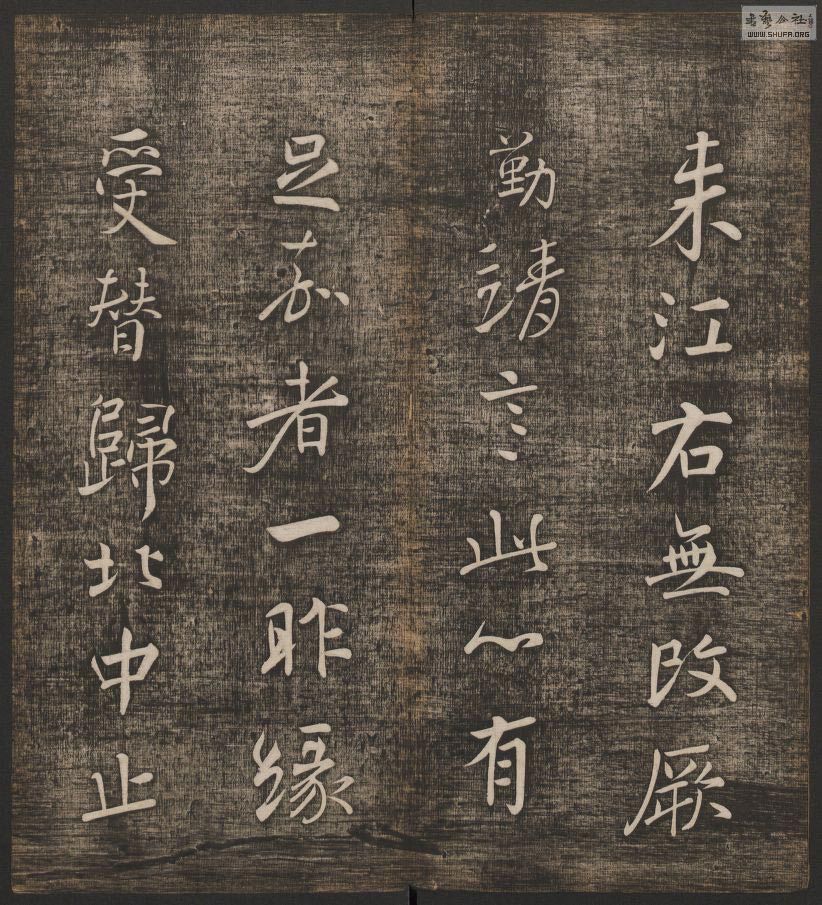 来江右無改厥
勤靖言此心有
足嘉者一昨緣
受替歸北中止
書藝公社
WWW.SHUFA.ORG